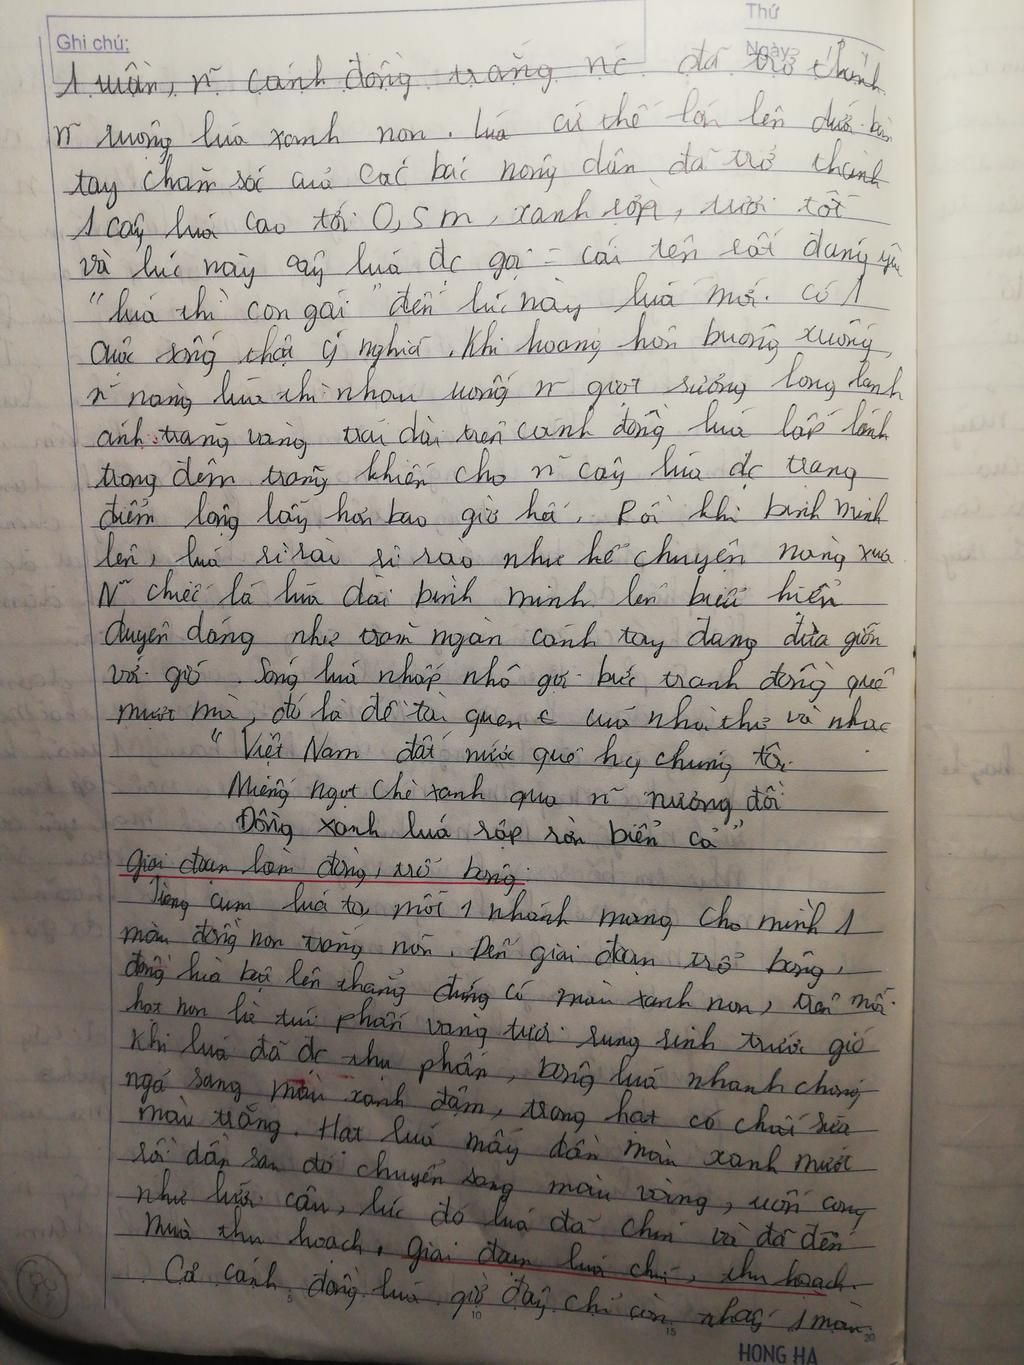 Thứ
Ghi chú:
Ngày
1 tuần, n~ cánh đồng trắng nc đã trở thành
n~ ruộng lúa xanh non. lúa cứ thế lớn lên dưới bàn
tay chăm sóc của các bác nông dân đã trở thành
1 cây lúa cao tới 0,5 m, xanh rợp, tươi tốt
và lúc này cây lúa đc gọi = cái tên rất đáng yêu
"lúa thì con gái" đến lúc này lúa mới có 1
cuộc sống thật ý nghĩa. Khi hoàng hôn buông xuống,
n~ nàng lúa thi nhau uống n~ giọt sương long lanh
ánh trăng vàng trải dài trên cánh đồng lúa lấp lánh
trong đêm trăng khiến cho n~ cây lúa đc trang
điểm lộng lẫy hơn bao giờ hết. Rồi khi bình minh
lên, lúa rì rào rì rào như kể chuyện nàng xưa
N~ chiếc lá lúa dài bình minh lên biểu hiện
duyên dáng như trăm ngàn cánh tay đang đùa giỡn
với gió. Sóng lúa nhấp nhô gợi bức tranh đồng quê
mượt mà, đó là đề tài quen c của nhà thơ và nhạc
"Việt Nam đất nước quê hg chúng tôi
Miếng ngọt chè xanh qua n~ nương đồi
Đồng xanh lúa rập rờn biển cả"
Giai đoạn làm đòng, trổ bông:
Từng cụm lúa to, mỗi 1 nhánh mang cho mình 1
màu đòng non trắng nõn. Đến giai đoạn trổ bông,
đòng lúa bật lên thẳng đứng có màu xanh non, trên mỗi
hạt non là túi phấn vàng tươi rung rinh trước gió
Khi lúa đã đc thụ phấn, bông lúa nhanh chóng
ngả sang màu xanh đậm, trong hạt có chất sữa
màu trắng. Hạt lúa mẩy dần màu xanh mướt
rồi dần sau đó chuyển sang màu vàng, uốn cong
như lưỡi câu, lúc đó lúa đã chín và đã đến
mùa thu hoạch. Giai đoạn lúa chín, thu hoạch.
Cả cánh đồng lúa giờ đây chỉ còn 1 màu
5 10 15 20
HONG HA